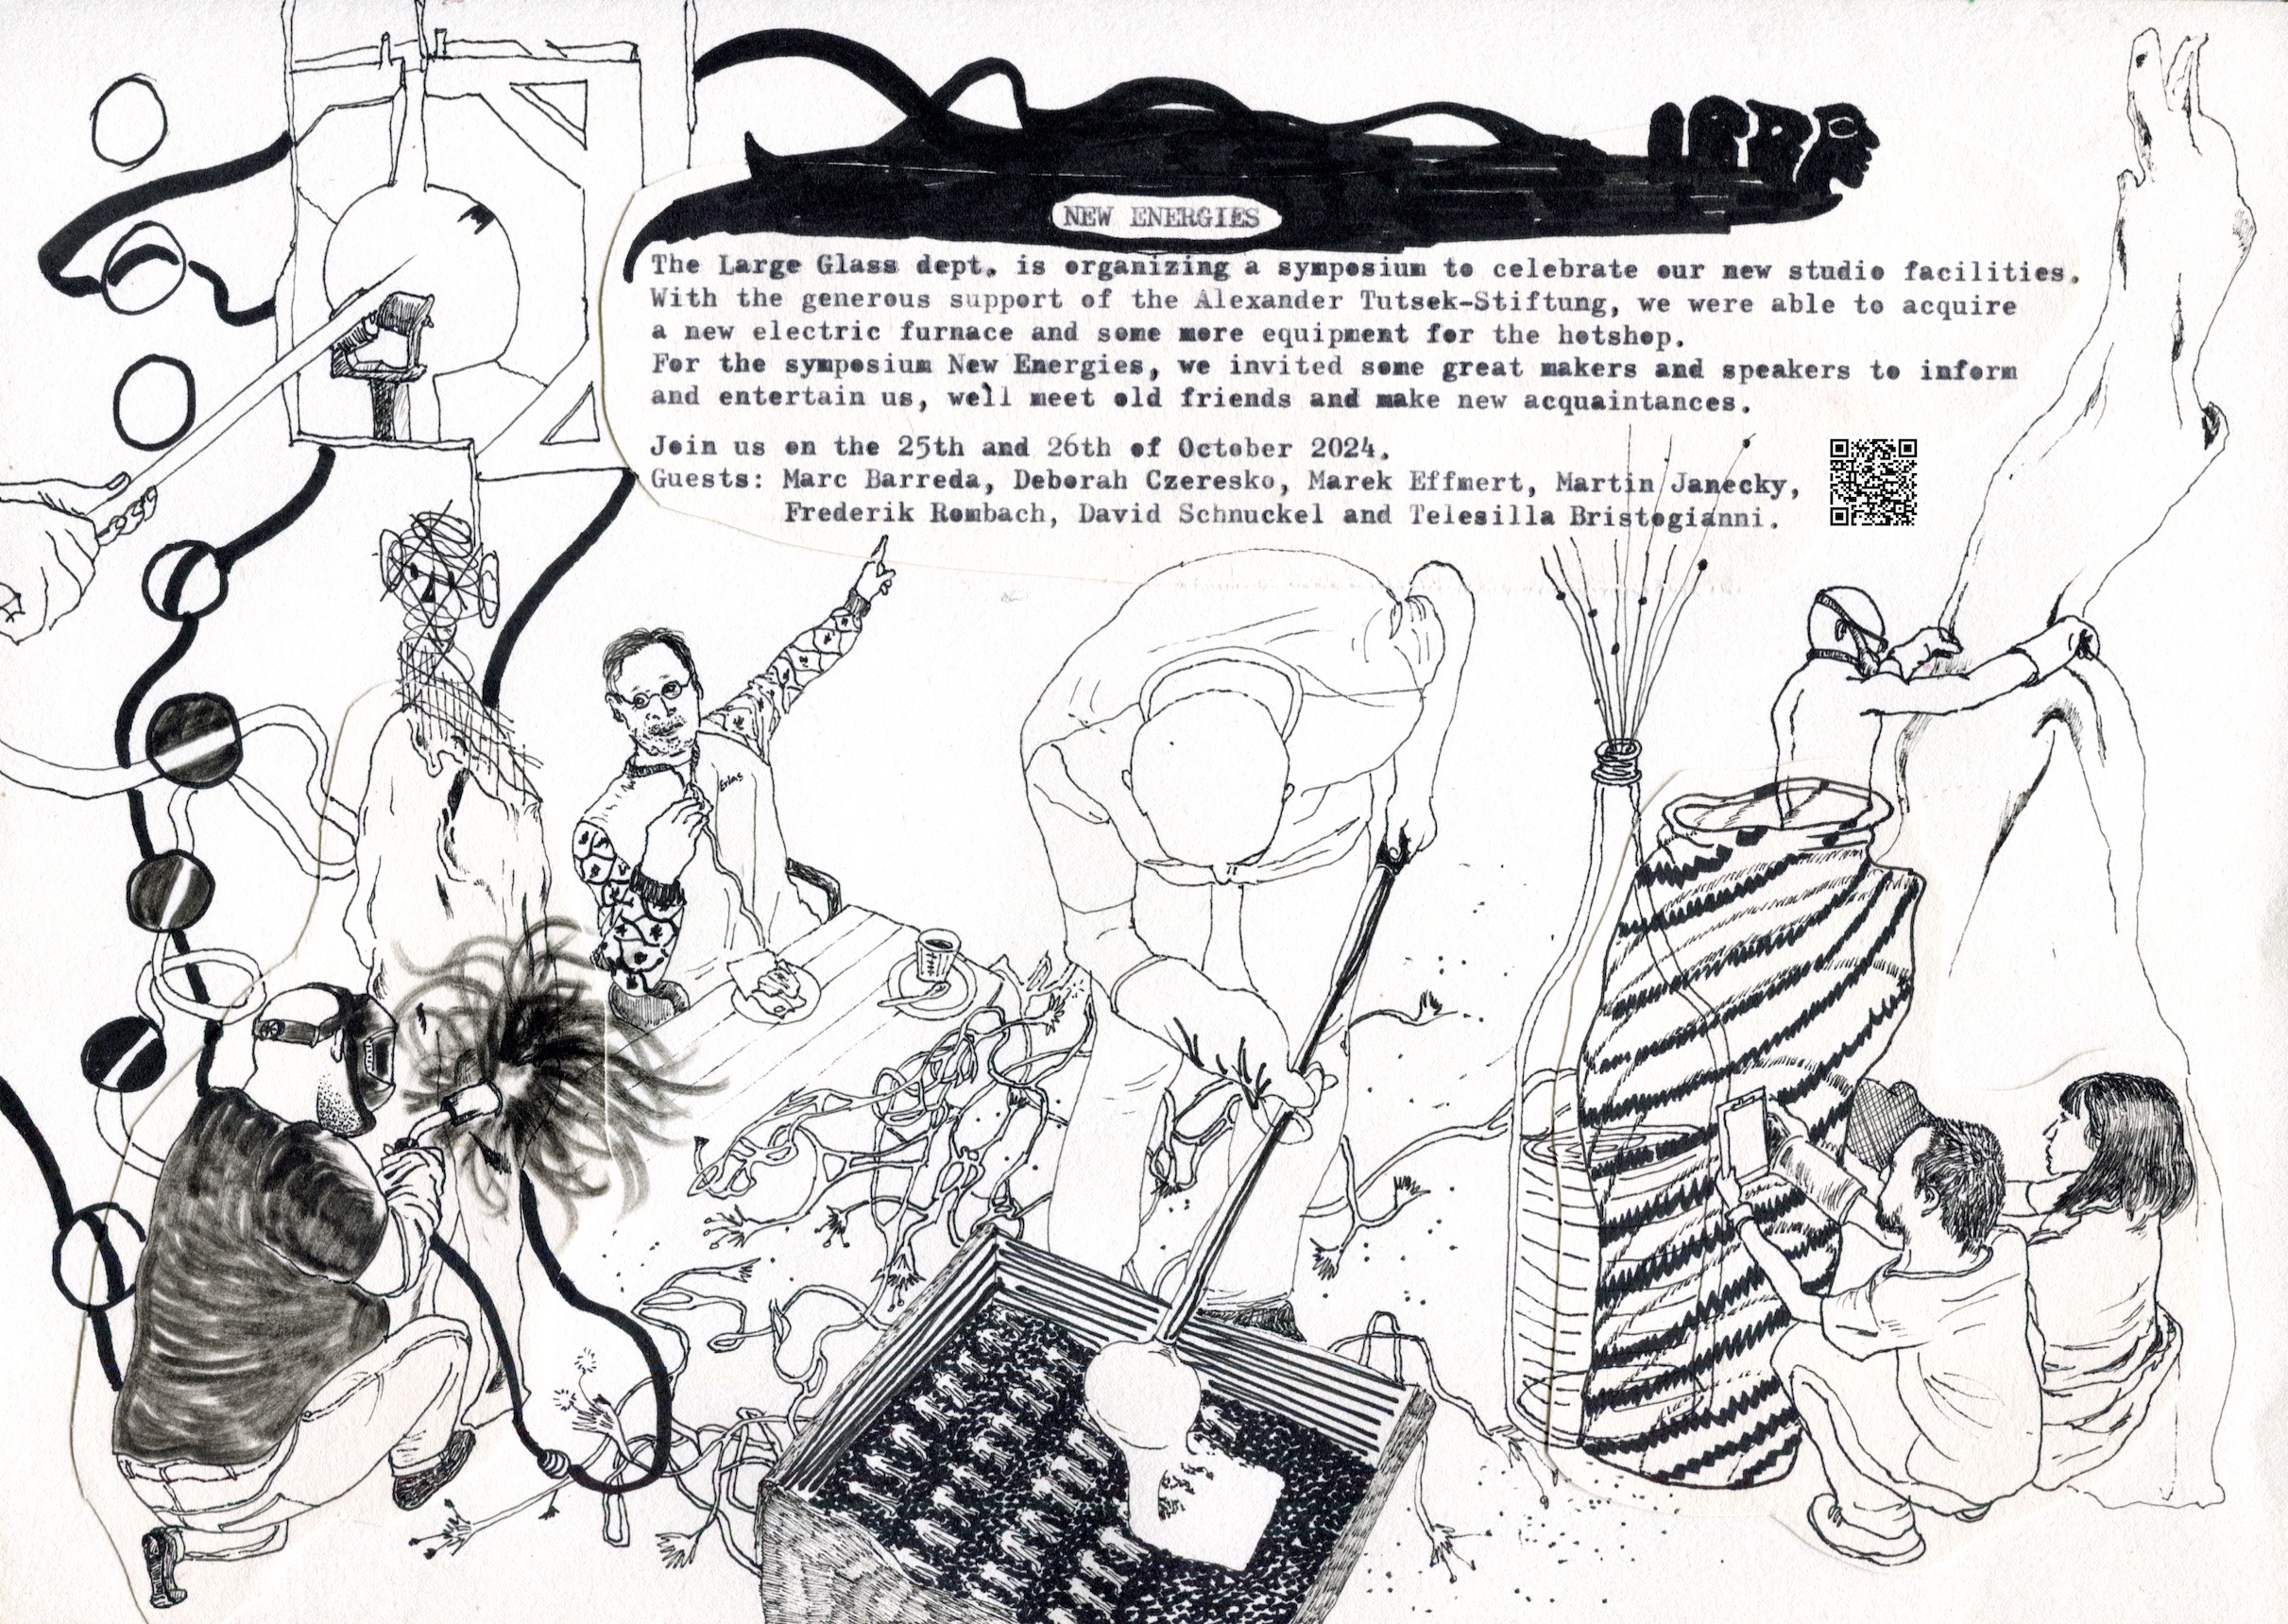 NEW ENERGIES
The Large Glass dept. is organizing a symposium to celebrate our new studio facilities.
With the generous support of the Alexander Tutsek-Stiftung, we were able to acquire
a new electric furnace and some more equipment for the hotshop.
For the symposium New Energies, we invited some great makers and speakers to inform
and entertain us, we'll meet old friends and make new acquaintances.
Join us on the 25th and 26th of October 2024.
Guests: Marc Barreda, Deborah Czeresko, Marek Effmert, Martin Janecky,
Frederik Rombach, David Schnuckel and Telesilla Bristogianni.